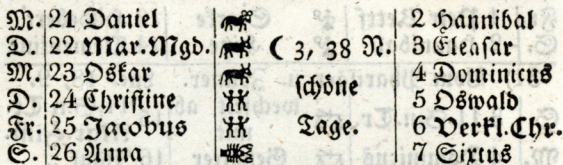 M. 21 Daniel 2 Hannibal
D. 22 Mar. Mgd. ( 3, 38 N. 3 Eleasar
M. 23 Oskar schöne 4 Dominicus
D. 24 Christine 5 Oswald
Fr. 25 Jacobus Tage. 6 Verkl. Chr.
S. 26 Anna 7 Sixtus